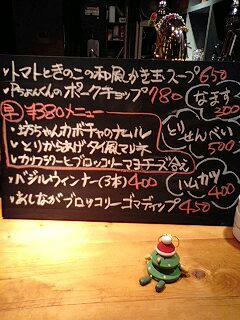 ・トマトときのこの和風かき玉スープ 650
ポークチョップ 780
なます
早 ¥380メニュー
・坊ちゃんカボチャの
とり せんべい
500
・とりからあげタイ風マリネ
・カリフラワーとブロッコリーマヨチーズ合え
・バジルウィンナー(3本) 400
ハムカツ
400
・あしながブロッコリーゴマディップ 450